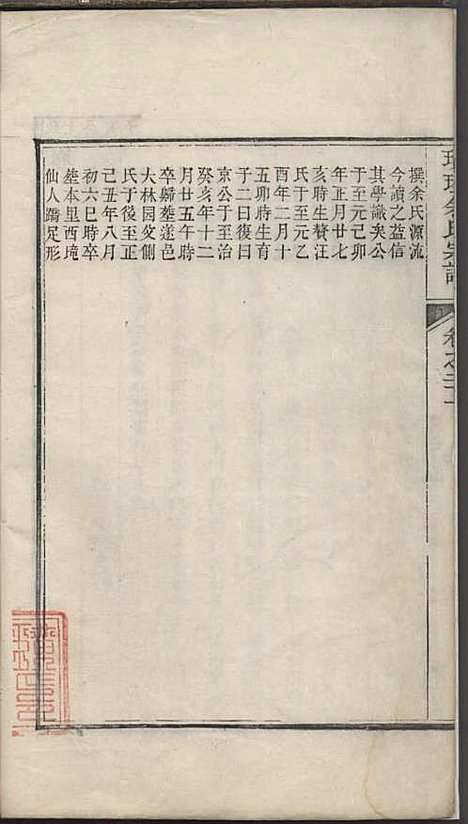 余氏宗譜
撰余氏源流
今讀之益信
其學識矣公
于至元己卯
年正月廿七
亥時生贅汪
氏于至元乙
酉年二月十
五卯時生育
子二曰復曰
京公于至治
癸亥年十二
月廿五午時
卒歸塟遂邑
大林园父側
氏于後至正
己丑年八月
初六巳時卒
塟本里西境
仙人蹻足形